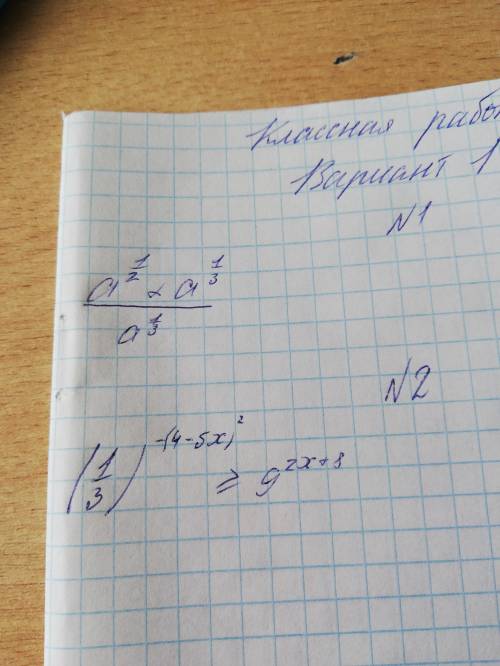 Классная рабо
Вариант 1
N1
a^{1/2} · a^{1/3} / a^{1/3}
N2
(1/3)^{-(4-5x)^2} ≥ 9^{2x+8}